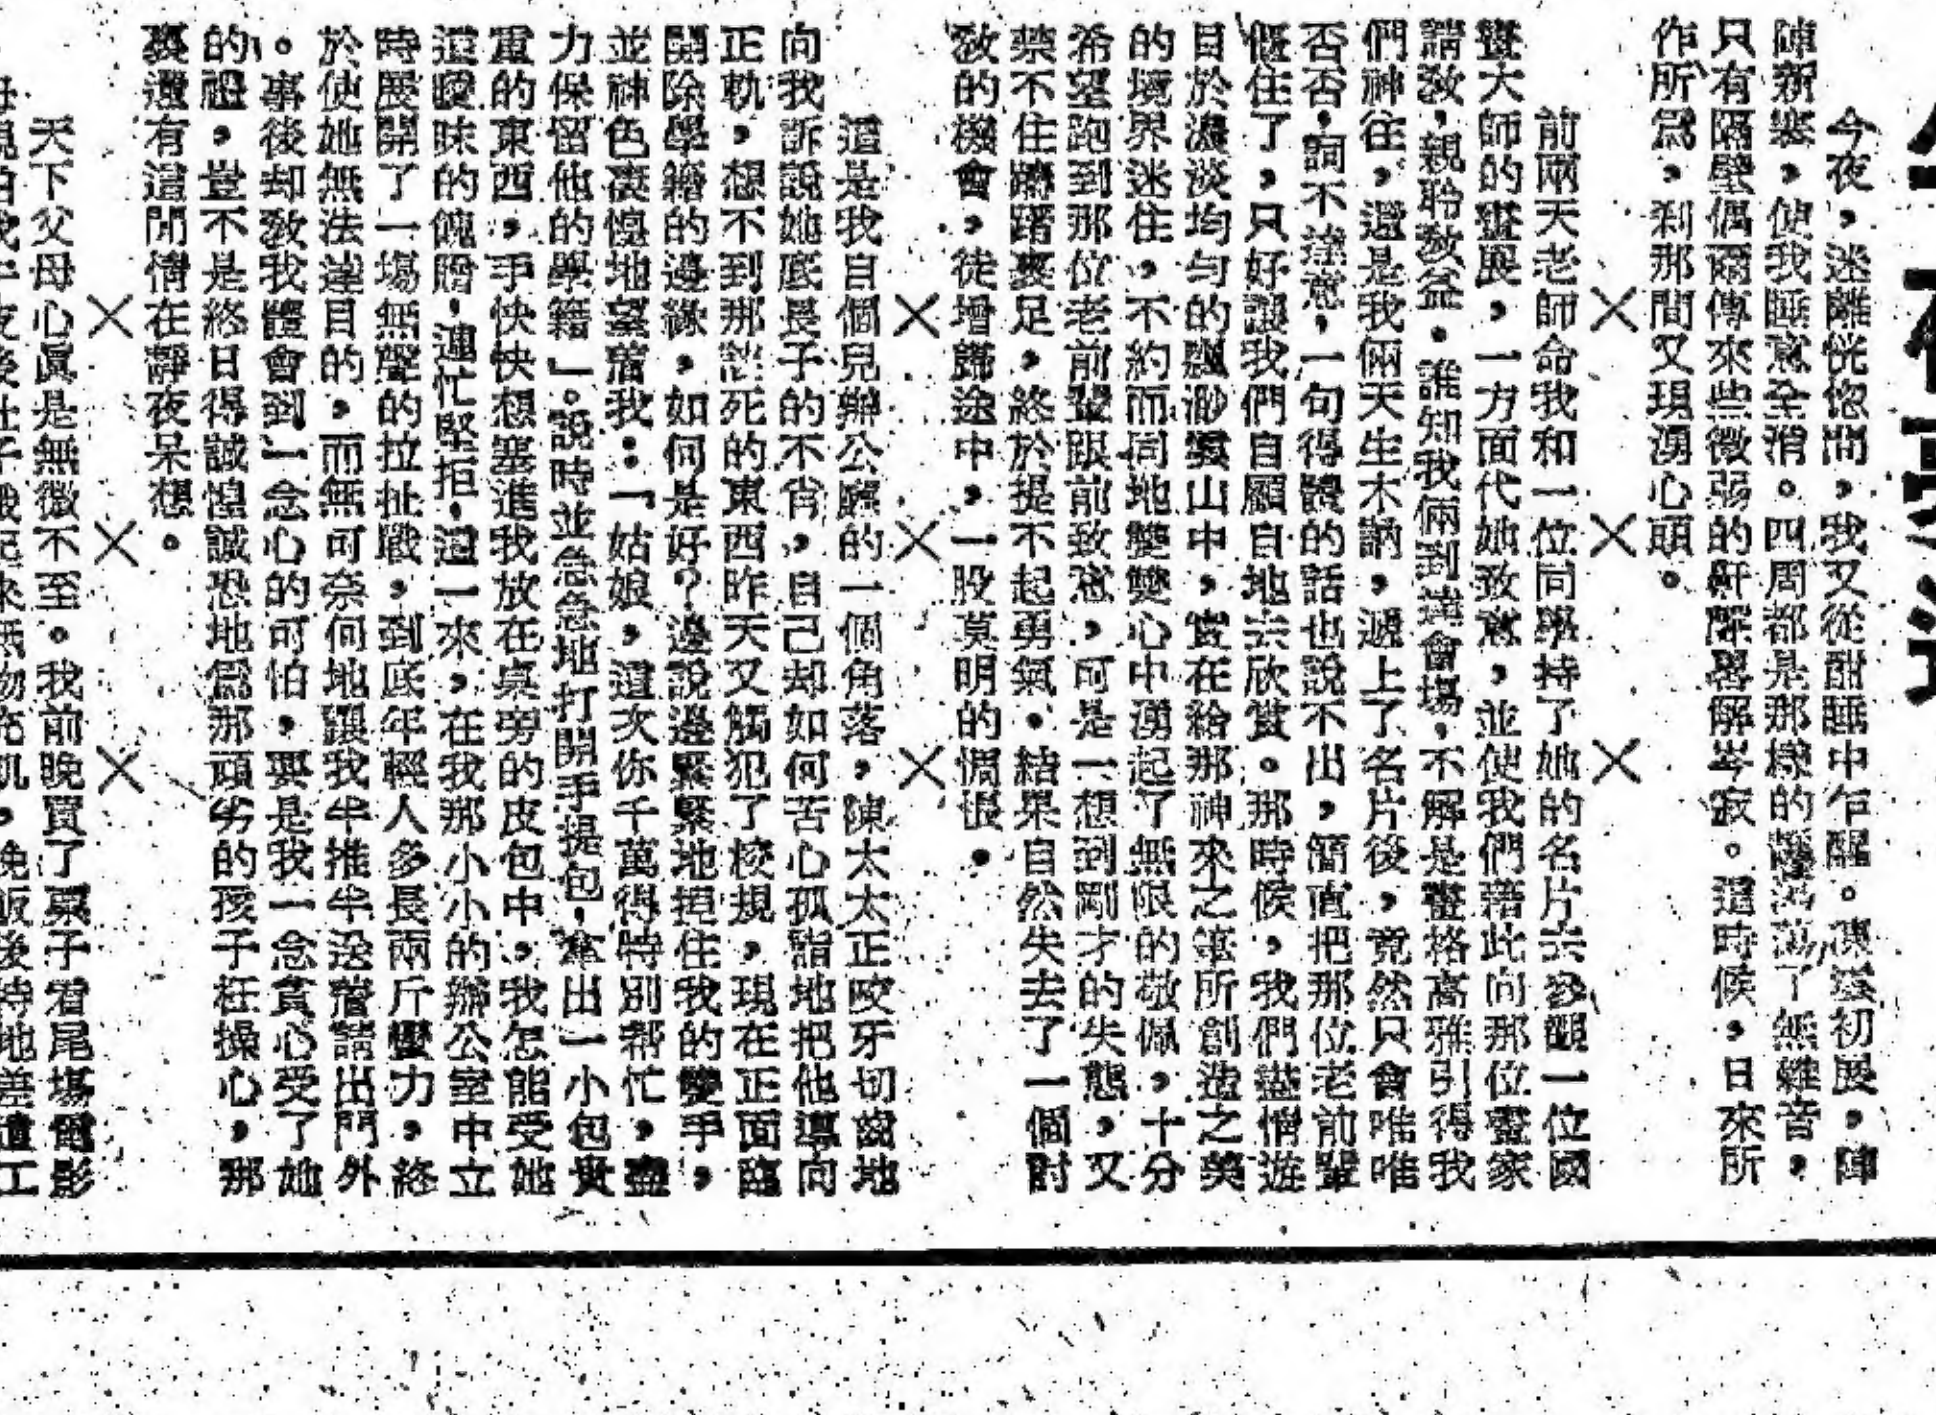 今夜，迷離恍惚間，我又從酣睡中乍醒。凄送初展，陣
陣新寒，使我睡意全消。四周都是那樣的靜了無雜音，
只有隔壁偶爾傳來些微弱的鼾聲畧解岑寂。這時候，日來所
作所爲，刹那間又現湧心頭。
×　×　×
前兩天老師命我和一位同學持了她的名片去參觀一位國
畫大師的畫展，一方面代她致意，並使我們藉此向那位畫家
請敎，親聆敎益。誰知我倆到達會場，不解是畫格高雅引得我
們神往，還是我倆天生木訥，遞上了名片後，竟然只會唯唯
否否，詞不達意，一句得體的話也說不出，簡直把那位老前輩
僵住了，只好讓我們自顧自地去欣賞。那時候，我們盡情遊
目於濃淡均勻的飄渺雲山中，實在給那神來之筆所創造之美
的境界迷住，不約而同地雙雙心中湧起了無限的敬佩，十分
希望跑到那位老前輩跟前致意，可是一想到剛才的失態，又
禁不住躊躇裹足，終於提不起勇氣。結果自然失去了一個討
敎的機會，徒增歸途中，一股莫明的惆悵。
×　×　×
這是我自個兒辦公廳的一個角落，陳太太正咬牙切齒地
向我訴說她底長子的不肖，自己却如何苦心孤詣地把他導向
正軌，想不到那該死的東西昨天又觸犯了校規，現在正面臨
開除學籍的邊緣，如何是好？邊說邊緊緊地抱住我的雙手，
並神色凄惶地望着我：「姑娘，這次你千萬得特別幇忙，盡
力保留他的學籍」。說時並急急地打開手提包，拿出一小包貴
重的東西，手快快想塞進我放在桌旁的皮包中，我怎能受她
這曖昧的餽贈，連忙堅拒，這一來，在我那小小的辦公室中立
時展開了一場無聲的拉扯戰，到底年輕人多長兩斤蠻力，終
於使她無法達目的，而無可奈何地讓我半推半送着請出門外
。事後却敎我體會到一念心的可怕，要是我一念貪心受了她
的禮，豈不是終日得誠惶誠恐地爲那頑劣的孩子枉操心，那
裏還有這閒情在靜夜呆想。
×　×　×
天下父母心眞是無微不至。我前晚買了票子看尾場電影